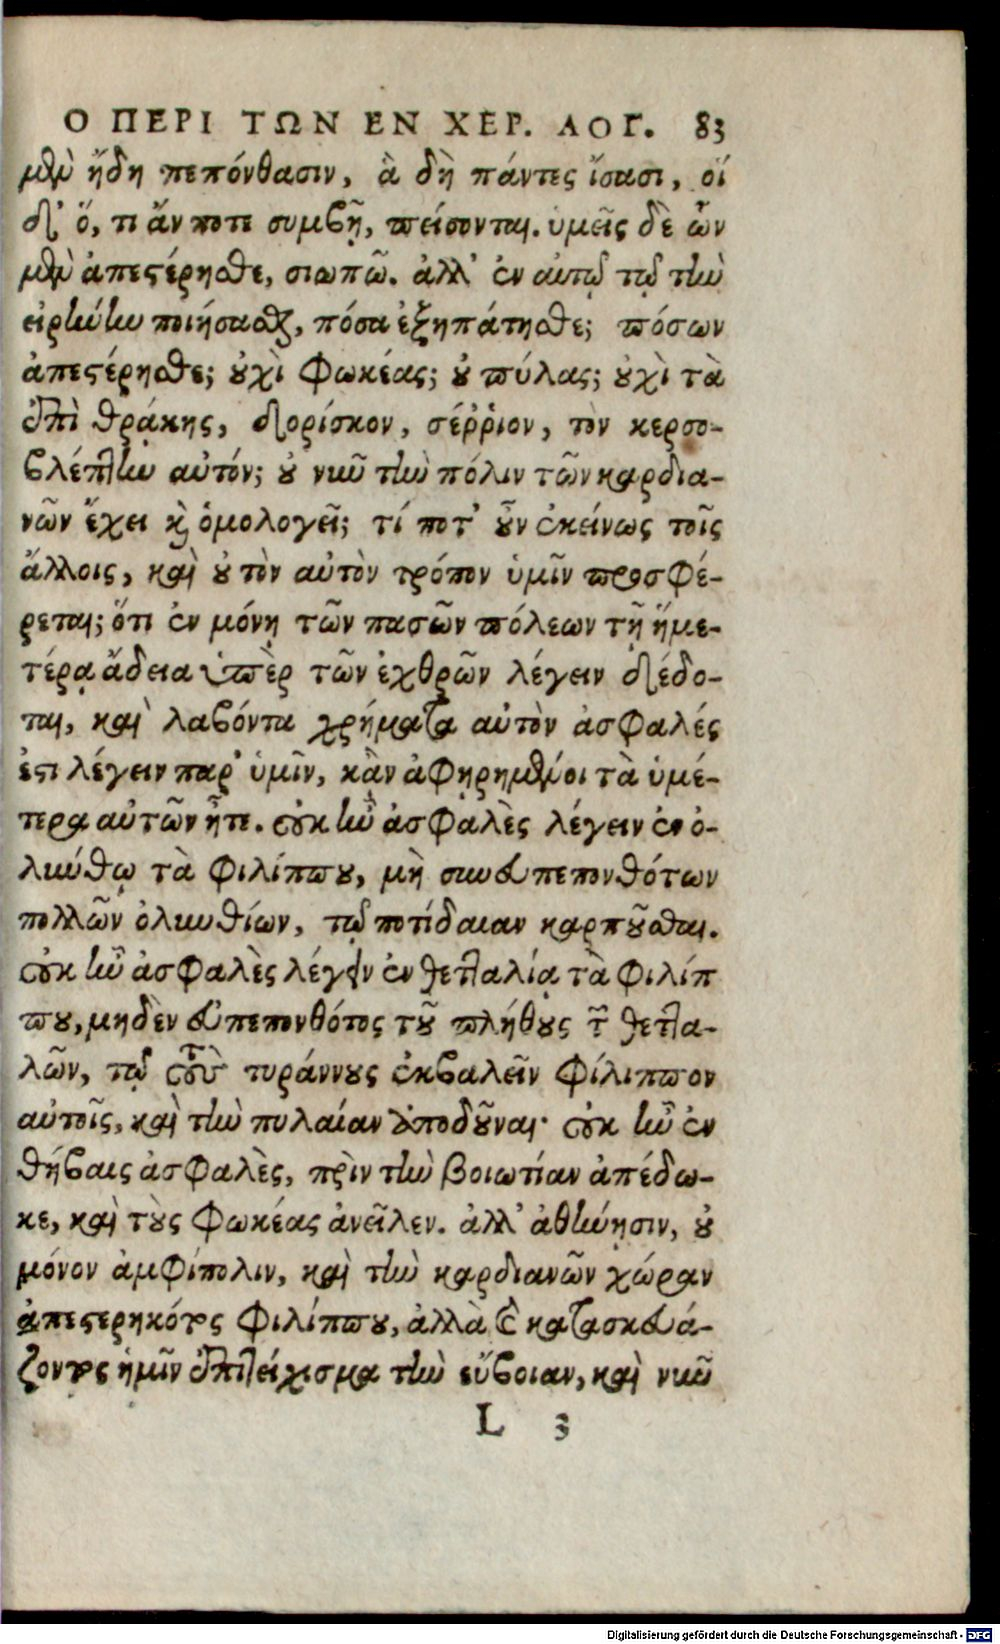 Ο ΠΕΡΙ ΤΩΝ ΕΝ ΧΕΡ. ΛΟΓ. 83
μὲν ἤδη πεπόνθασιν, ἃ δὴ πάντες ἴσασι, οἱ
δ' ὅ, τι ἄν ποτε συμβῇ, πείσονται. ὑμεῖς δὲ ὧν
μὲν ἀπεστέρησθε, σιωπῶ. ἀλλ' ἐν αὐτῷ τῷ τὴν
εἰρήνην ποιήσασθαι, πόσα ἐξηπάτησθε; πόσων
ἀπεστέρησθε; οὐχὶ Φωκέας; οὐ πύλας; οὐχὶ τὰ
ἐπὶ θρᾴκης, δορίσκον, σέῤῥιον, τὸν κερσο-
βλέπτην αὐτόν; οὐ νῦν τὴν πόλιν τῶν καρδια-
νῶν ἔχει καὶ ὁμολογεῖ; τί ποτ' οὖν ἐκείνως τοῖς
ἄλλοις, καὶ οὐ τὸν αὐτὸν τρόπον ὑμῖν προσφέ-
ρεται; ὅτι ἐν μόνῃ τῶν πασῶν πόλεων τῇ ἡμε-
τέρᾳ ἄδεια ὑπὲρ τῶν ἐχθρῶν λέγειν δέδο-
ται, καὶ λαβόντα χρήματα αὐτὸν ἀσφαλές
ἐστι λέγειν παρ' ὑμῖν, κἂν ἀφῃρημένοι τὰ ὑμέ-
τερα αὐτῶν ἦτε. οὐκ ἦν ἀσφαλὲς λέγειν ἐν ὀ-
λύνθῳ τὰ Φιλίππου, μὴ συνευπεπονθότων
πολλῶν ὀλυνθίων, τῷ ποτίδαιαν καρποῦσθαι.
οὐκ ἦν ἀσφαλὲς λέγειν ἐν θετταλίᾳ τὰ Φιλίπ
που, μηδὲν εὐπεπονθότος τοῦ πλήθους τῶν θεττα-
λῶν, τῷ τοὺς τυράννους ἐκβαλεῖν Φίλιππον
αὐτοῖς, καὶ τὴν πυλαίαν ἀποδοῦναι· οὐκ ἦν ἐν
θήβαις ἀσφαλὲς, πρὶν τὴν βοιωτίαν ἀπέδω-
κε, καὶ τοὺς Φωκέας ἀνεῖλεν. ἀλλ' ἀθήνησιν, οὐ
μόνον ἀμφίπολιν, καὶ τὴν καρδιανῶν χώραν
ἀπεστερηκότος Φιλίππου, ἀλλὰ καὶ κατασκευά-
ζοντος ἡμῖν ἐπιτείχισμα τὴν εὔβοιαν, καὶ νῦν
L 3
Digitalisierung gefördert durch die Deutsche Forschungsgemeinschaft - DFG